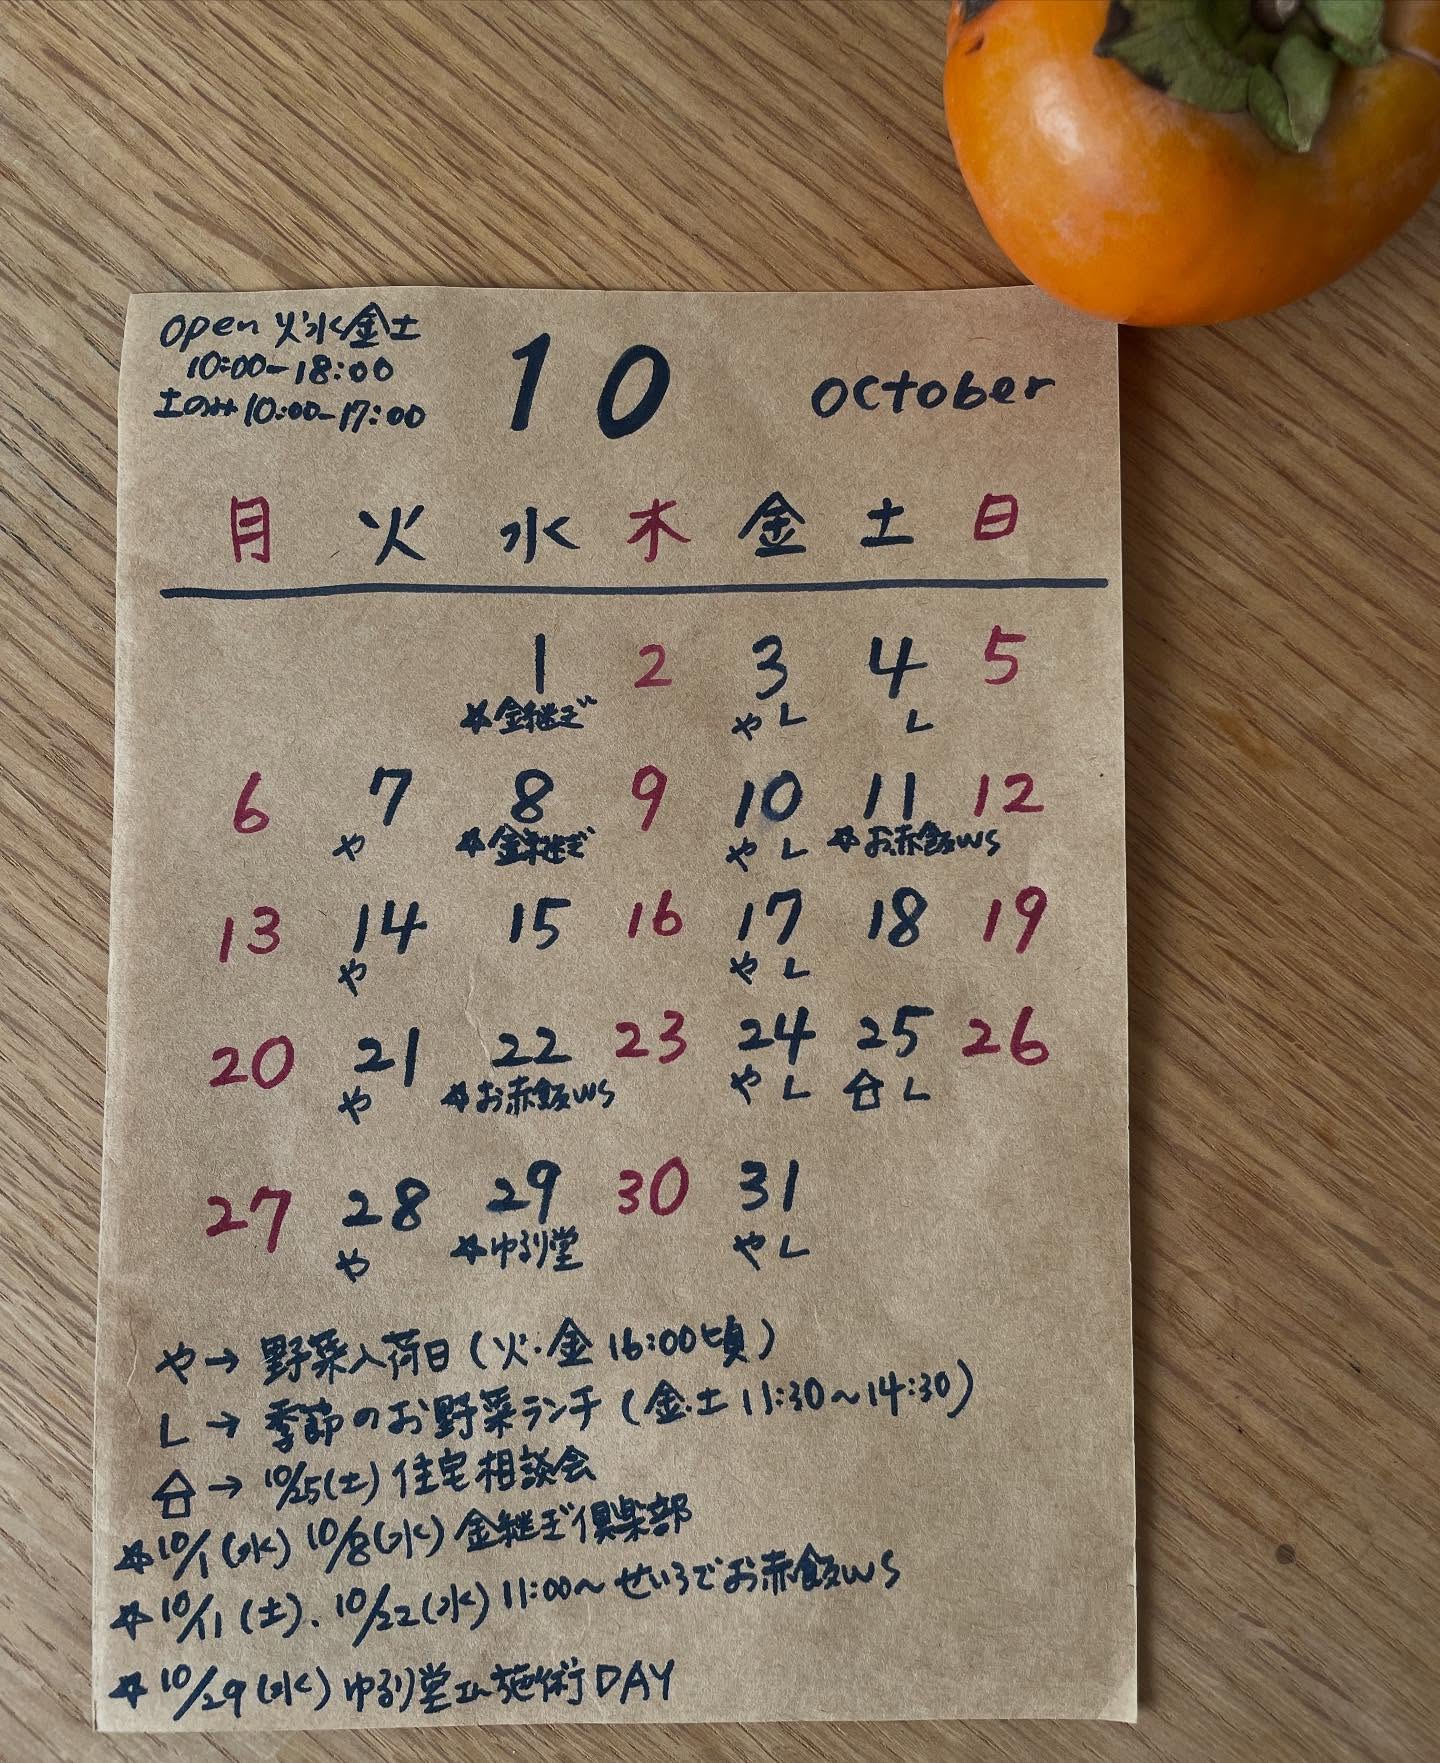 open 火水金土
10:00-18:00
土のみ 10:00-17:00
10
october
月 火 水 木 金 土 日
1 2 3 4 5
☆金継ぎ やL L
6 7 8 9 10 11 12
や ☆金継ぎ やL ☆お赤飯WS
13 14 15 16 17 18 19
や やL
20 21 22 23 24 25 26
や ☆お赤飯WS やL L
27 28 29 30 31
や ☆ゆるり堂 やL
や→ 野菜入荷日(火・金 16:00頃)
L→ 季節のお野菜ランチ(金・土 11:30〜14:30)
→ 10/25(土) 住宅相談会
☆10/1(水) 10/8(水) 金継ぎ倶楽部
☆10/11(土)、10/22(水) 11:00〜 せいろでお赤飯WS
☆10/29(水) ゆるり堂さん施術DAY